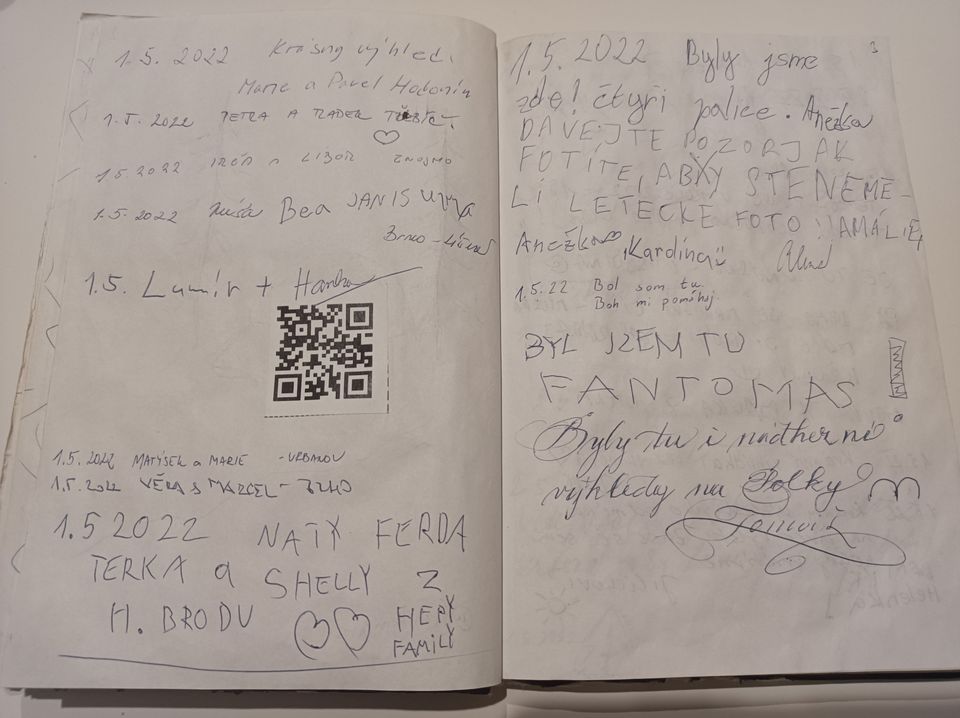 1.5. 2022 Krásný výhled.
Marie a Pavel Hodonín
1.5. 2022 PETRA A RADEK TŘEBÍČ.
1.5.2022 LIBOR ZNOJMO
1.5.2022 Bea JANIS
Brno - Líšeň
1.5. Lumír + Hanka
1.5.2022 MATÝSEK a MARIE - VRBNOV
1.5.2022 VĚRA & MARCEL - BRNO
1.5 2022 NATY FERDA
TERKA a SHELLY Z
H. BRODU HEPY
FAMILY
3
1.5.2022 Byly jsme
zde! čtyři police. Anežka
DÁVEJTE POZOR JAK
FOTÍTE, ABY STE NEMĚ-
LI LETECKÉ FOTO !! AMÁLIE,
Anežka Kardinců
1.5.22 Bol som tu.
Boh mi pomáhej.
BYL JSEM TU
FANTOMAS
Byly tu i nádherné
výhledy na Polky